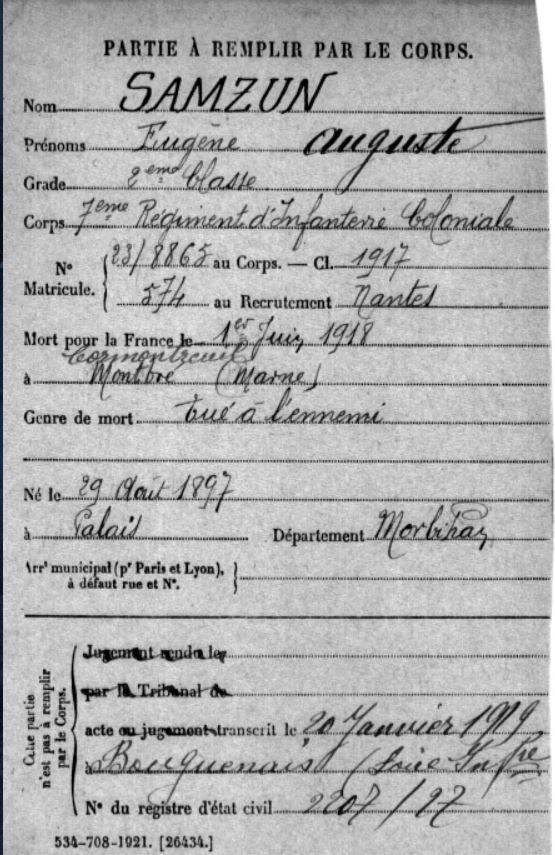 PARTIE À REMPLIR PAR LE CORPS.
Nom SAMZUN
Prénoms Eugène Auguste
Grade 2eme Classe
Corps 7eme Régiment d'Infanterie Coloniale
N° Matricule. 23/8865 au Corps. — Cl. 1917
574 au Recrutement Nantes
Mort pour la France le 1er Juin 1918
Cormontreuil
à Montbré (Marne)
Genre de mort tué à l'ennemi
Né le 29 Août 1897
à Palais Département Morbihan
Arrt municipal (pr Paris et Lyon), à défaut rue et N°.
Cette partie n'est pas à remplir par le Corps.
Jugement rendu le
par le Tribunal de
acte ou jugement transcrit le 20 Janvier 1919
à Bouguenais (Loire Infre
N° du registre d'état civil 2207/27
534-708-1921. [26434.]